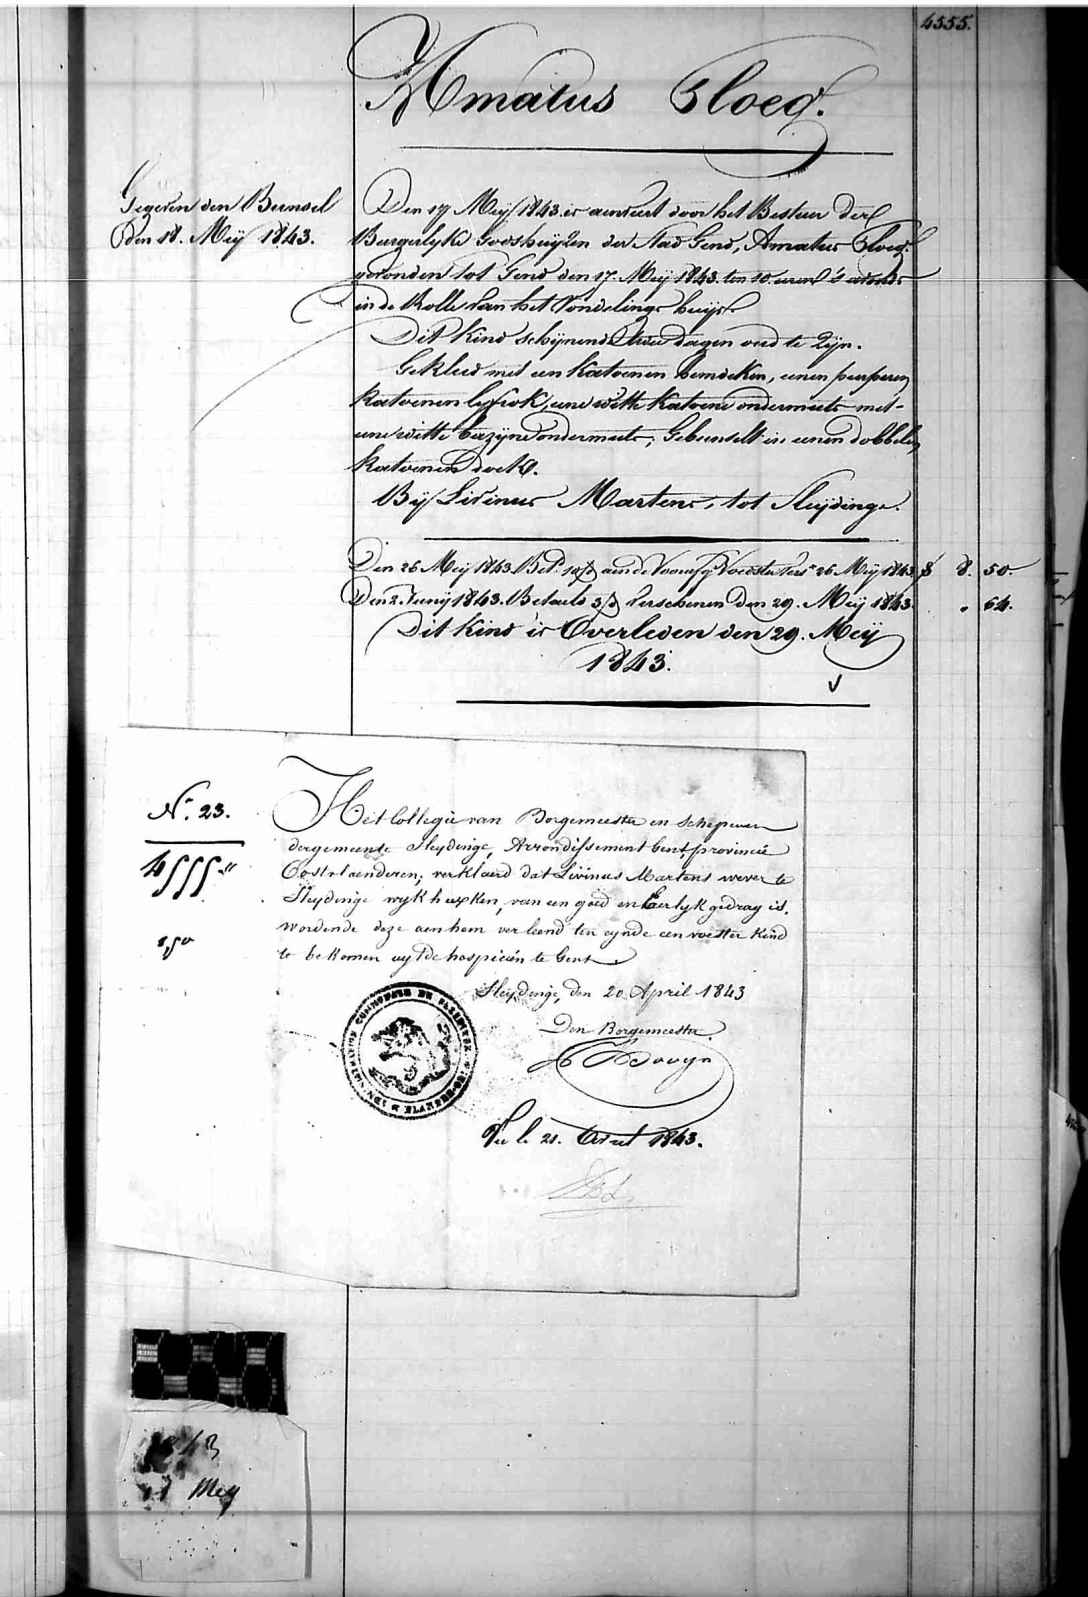 4555.
Amatus Ploeg.
Gegeven den Bunsel
den 18. Meÿ 1843.
Den 17 Meÿ 1843. is aenveert door het Bestuer der
Burgerlyke Godshuÿzen der Stad Gend, Amatus Ploeg.
gevonden tot Gend den 17. Meÿ 1843. ten 10. uren 's avonds
in de Rolle van het Vondelings huÿs.
Dit kind schÿnende twee dagen oud te zÿn.
Gekleed met een katoenen hemdeken, eenen purperen
katoenen lyfrok, eene witte katoene ondermuts met
eene witte bazÿne ondermuts; Gebunselt in eenen dobbelen
katoenen doek.
Bÿ Livinus Martens, tot Sleÿdinge.
Den 26 Meÿ 1843. Bet. aen de Voorsz. Voedster vers. 26 Meÿ 1843. 8. 50.
Den 2. Junÿ 1843. Betaeld 3/d verschenen den 29. Meÿ 1843. " 64.
Dit kind is Overleden den 29. Meÿ
1843.
N.º 23.
4555
Het Collegie van Borgemeester en Schepenen
der gemeente Sleydinge, Arrondissement Gent, provincie
Oostvlaenderen; verklaerd dat Livinus Martens wever te
Sleydinge wyk huysken, van een goed en Eerlyk gedrag is.
wordende deze aen hem verleend ten eynde een voester kind
te bekomen uyt de hospiciën te Gent
Sleydinge, den 20 April 1843
Den Borgemeester
Vu le 21. Avril 1843.
1843
18 Mey